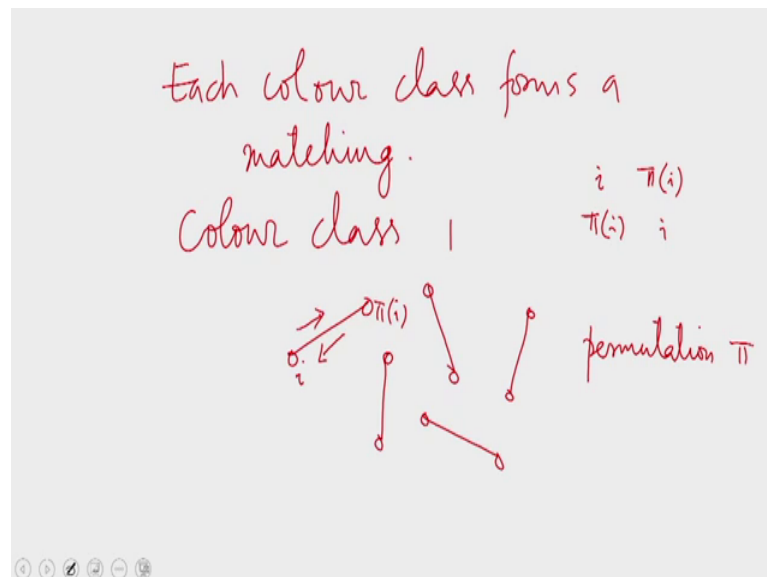 Each colour class forms a
matching.
i π(i)
Colour class 1
π(i) i
π(i)
i
permutation π